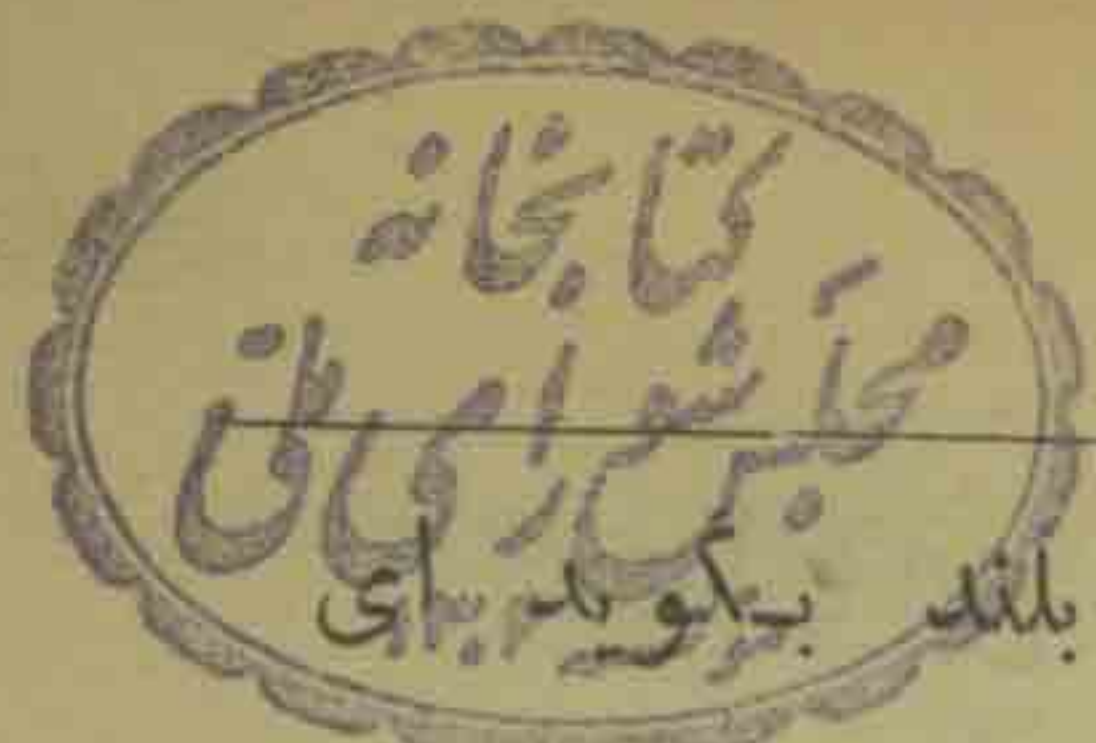 کتابخانه
مجلس شورای ملی
بلند بگوید ای